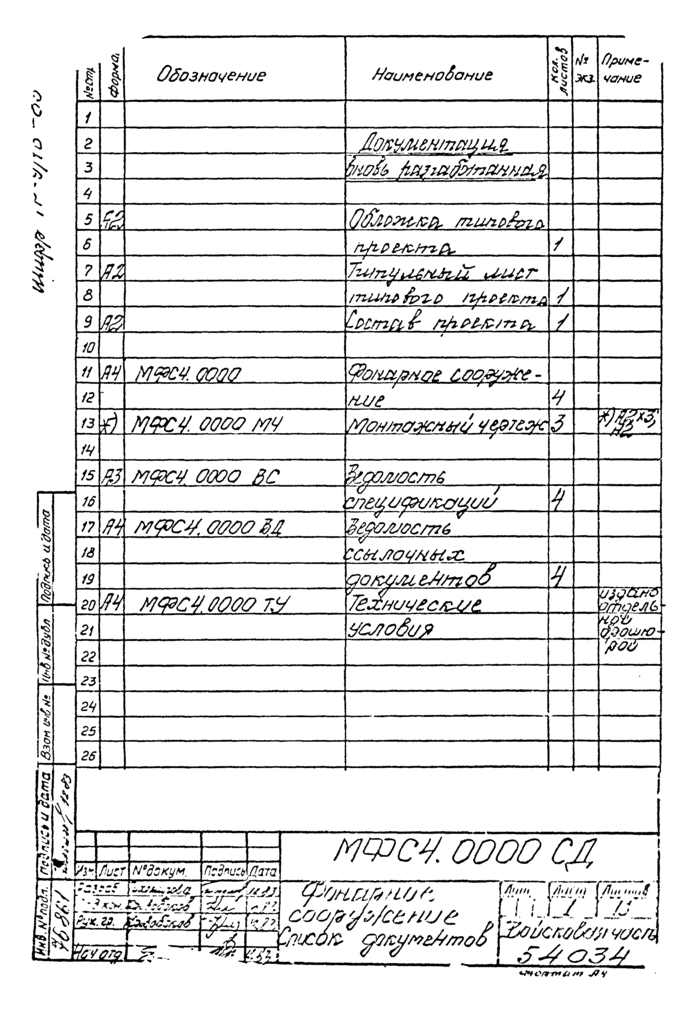 № стр. Форма Обозначение Наименование Кол. листов № экз. Приме-
чание
1
2 Документация
3 вновь разработанная
4
5 А2 Обложка типового
6 проекта 1
7 А2 Титульный лист
8 типового проекта 1
9 А2 Состав проекта 1
10
11 А4 МФС4.0000 Фонарное сооруже-
12 ние 4
13 *) МФС4.0000 МЧ Монтажный чертеж 3 *) А2х3,
А2
14
15 А3 МФС4.0000 ВС Ведомость
16 спецификаций 4
17 А4 МФС4.0000 ВД Ведомость
18 ссылочных
19 документов 4
20 А4 МФС4.0000 ТУ Технические издано
отдель-
21 условия ной
брошю-
рой
22
23
24
25
26
Инв. № подл. Подпись и дата Взам инв. № Инв № дубл. Подпись и дата
12.83
МФС4.0000 СД
Изм Лист № докум. Подпись Дата
Разраб
Рук. гр.
Нач отд
Фонарное
сооружение
Список документов
Лит. Лист Листов
1
Войсковая часть
54034
формат А4